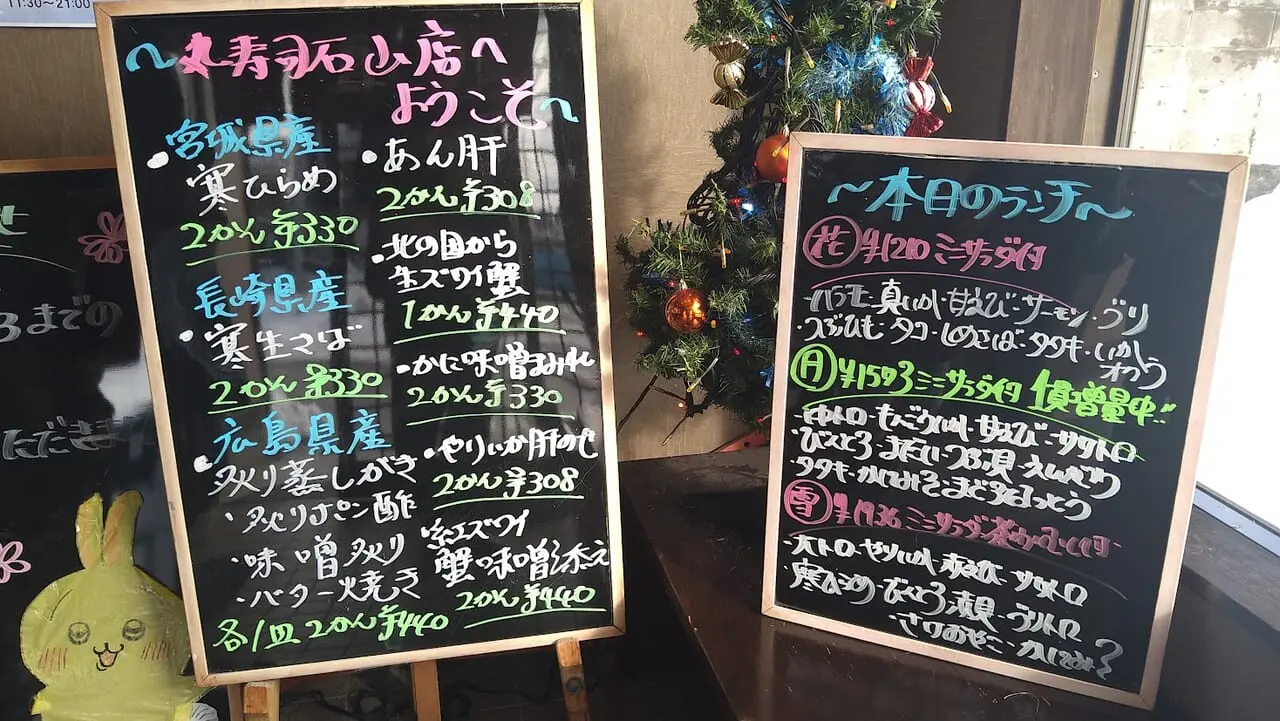 11:30～21:00
3までの
ただきま
～丸寿司石山店へ
ようこそ～
宮城県産
・寒ひらめ
2かん¥330
長崎県産
・寒生さば
2かん¥330
広島県産
・炙り蒸しがき
・炙りポン酢
・味噌炙り
・バター焼き
各1皿2かん¥440
・あん肝
2かん¥308
・北の国から
生ズワイ蟹
1かん¥440
・かに味噌まみれ
2かん¥330
・やりいか肝のせ
2かん¥308
紅ズワイ
蟹の味噌添え
2かん¥440
～本日のランチ～
花 ¥1210 ミニサラダ付
真いか・甘えび・サーモン・ぶり
・つぶひも・タコ・しめさば・タタキ・いかしょう
月 ¥1573 ミニサラダ付 1貫増量中!!
中トロ・もんごういか・甘えび・サケトロ
・びんとろ・まだい・つぶ貝・えんがわ
・タタキ・かにみそ
雪 ¥1936 ミニサラダ・茶わんむし付
大トロ・やりいか・赤えび・サケトロ
寒ひらめ・びんとろ